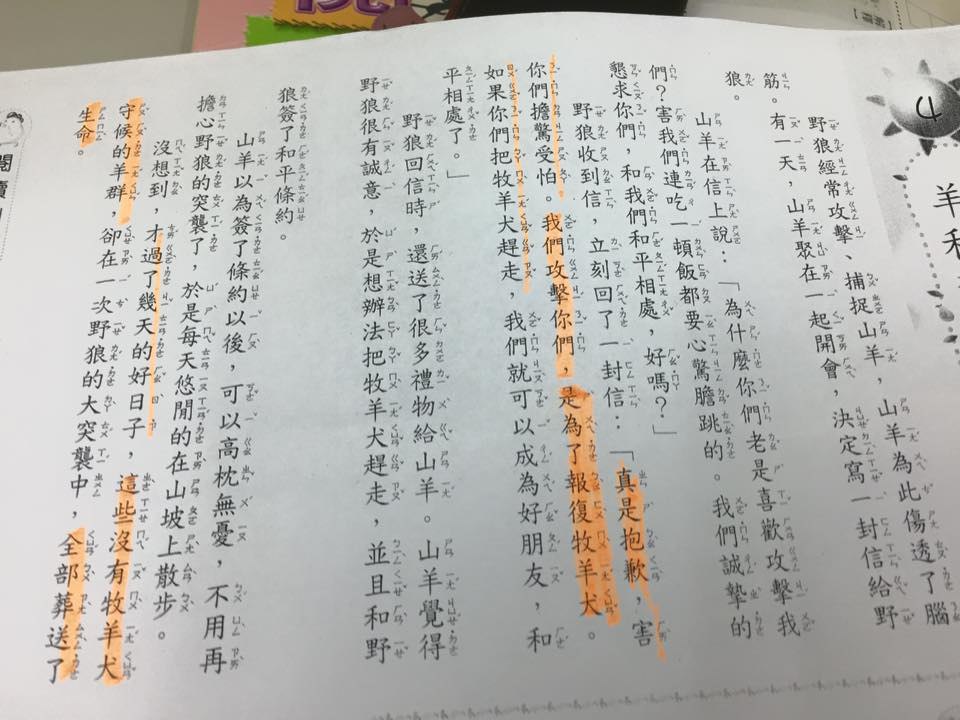 4
羊和
野狼經常攻擊、捕捉山羊，山羊為此傷透了腦
筋。有一天，山羊聚在一起開會，決定寫一封信給野
狼。
山羊在信上說：「為什麼你們老是喜歡攻擊我
們？害我們連吃一頓飯都要心驚膽跳的。我們誠摯的
懇求你們，和我們和平相處，好嗎？」
野狼收到信，立刻回了一封信：「真是抱歉，害
你們擔驚受怕。我們攻擊你們，是為了報復牧羊犬。
如果你們把牧羊犬趕走，我們就可以成為好朋友，和
平相處了。」
野狼回信時，還送了很多禮物給山羊。山羊覺得
野狼很有誠意，於是想辦法把牧羊犬趕走，並且和野
狼簽了和平條約。
山羊以為簽了條約以後，可以高枕無憂，不用再
擔心野狼的突襲了，於是每天悠閒的在山坡上散步。
沒想到，才過了幾天的好日子，這些沒有牧羊犬
守候的羊群，卻在一次野狼的大突襲中，全部葬送了
生命。
閱讀